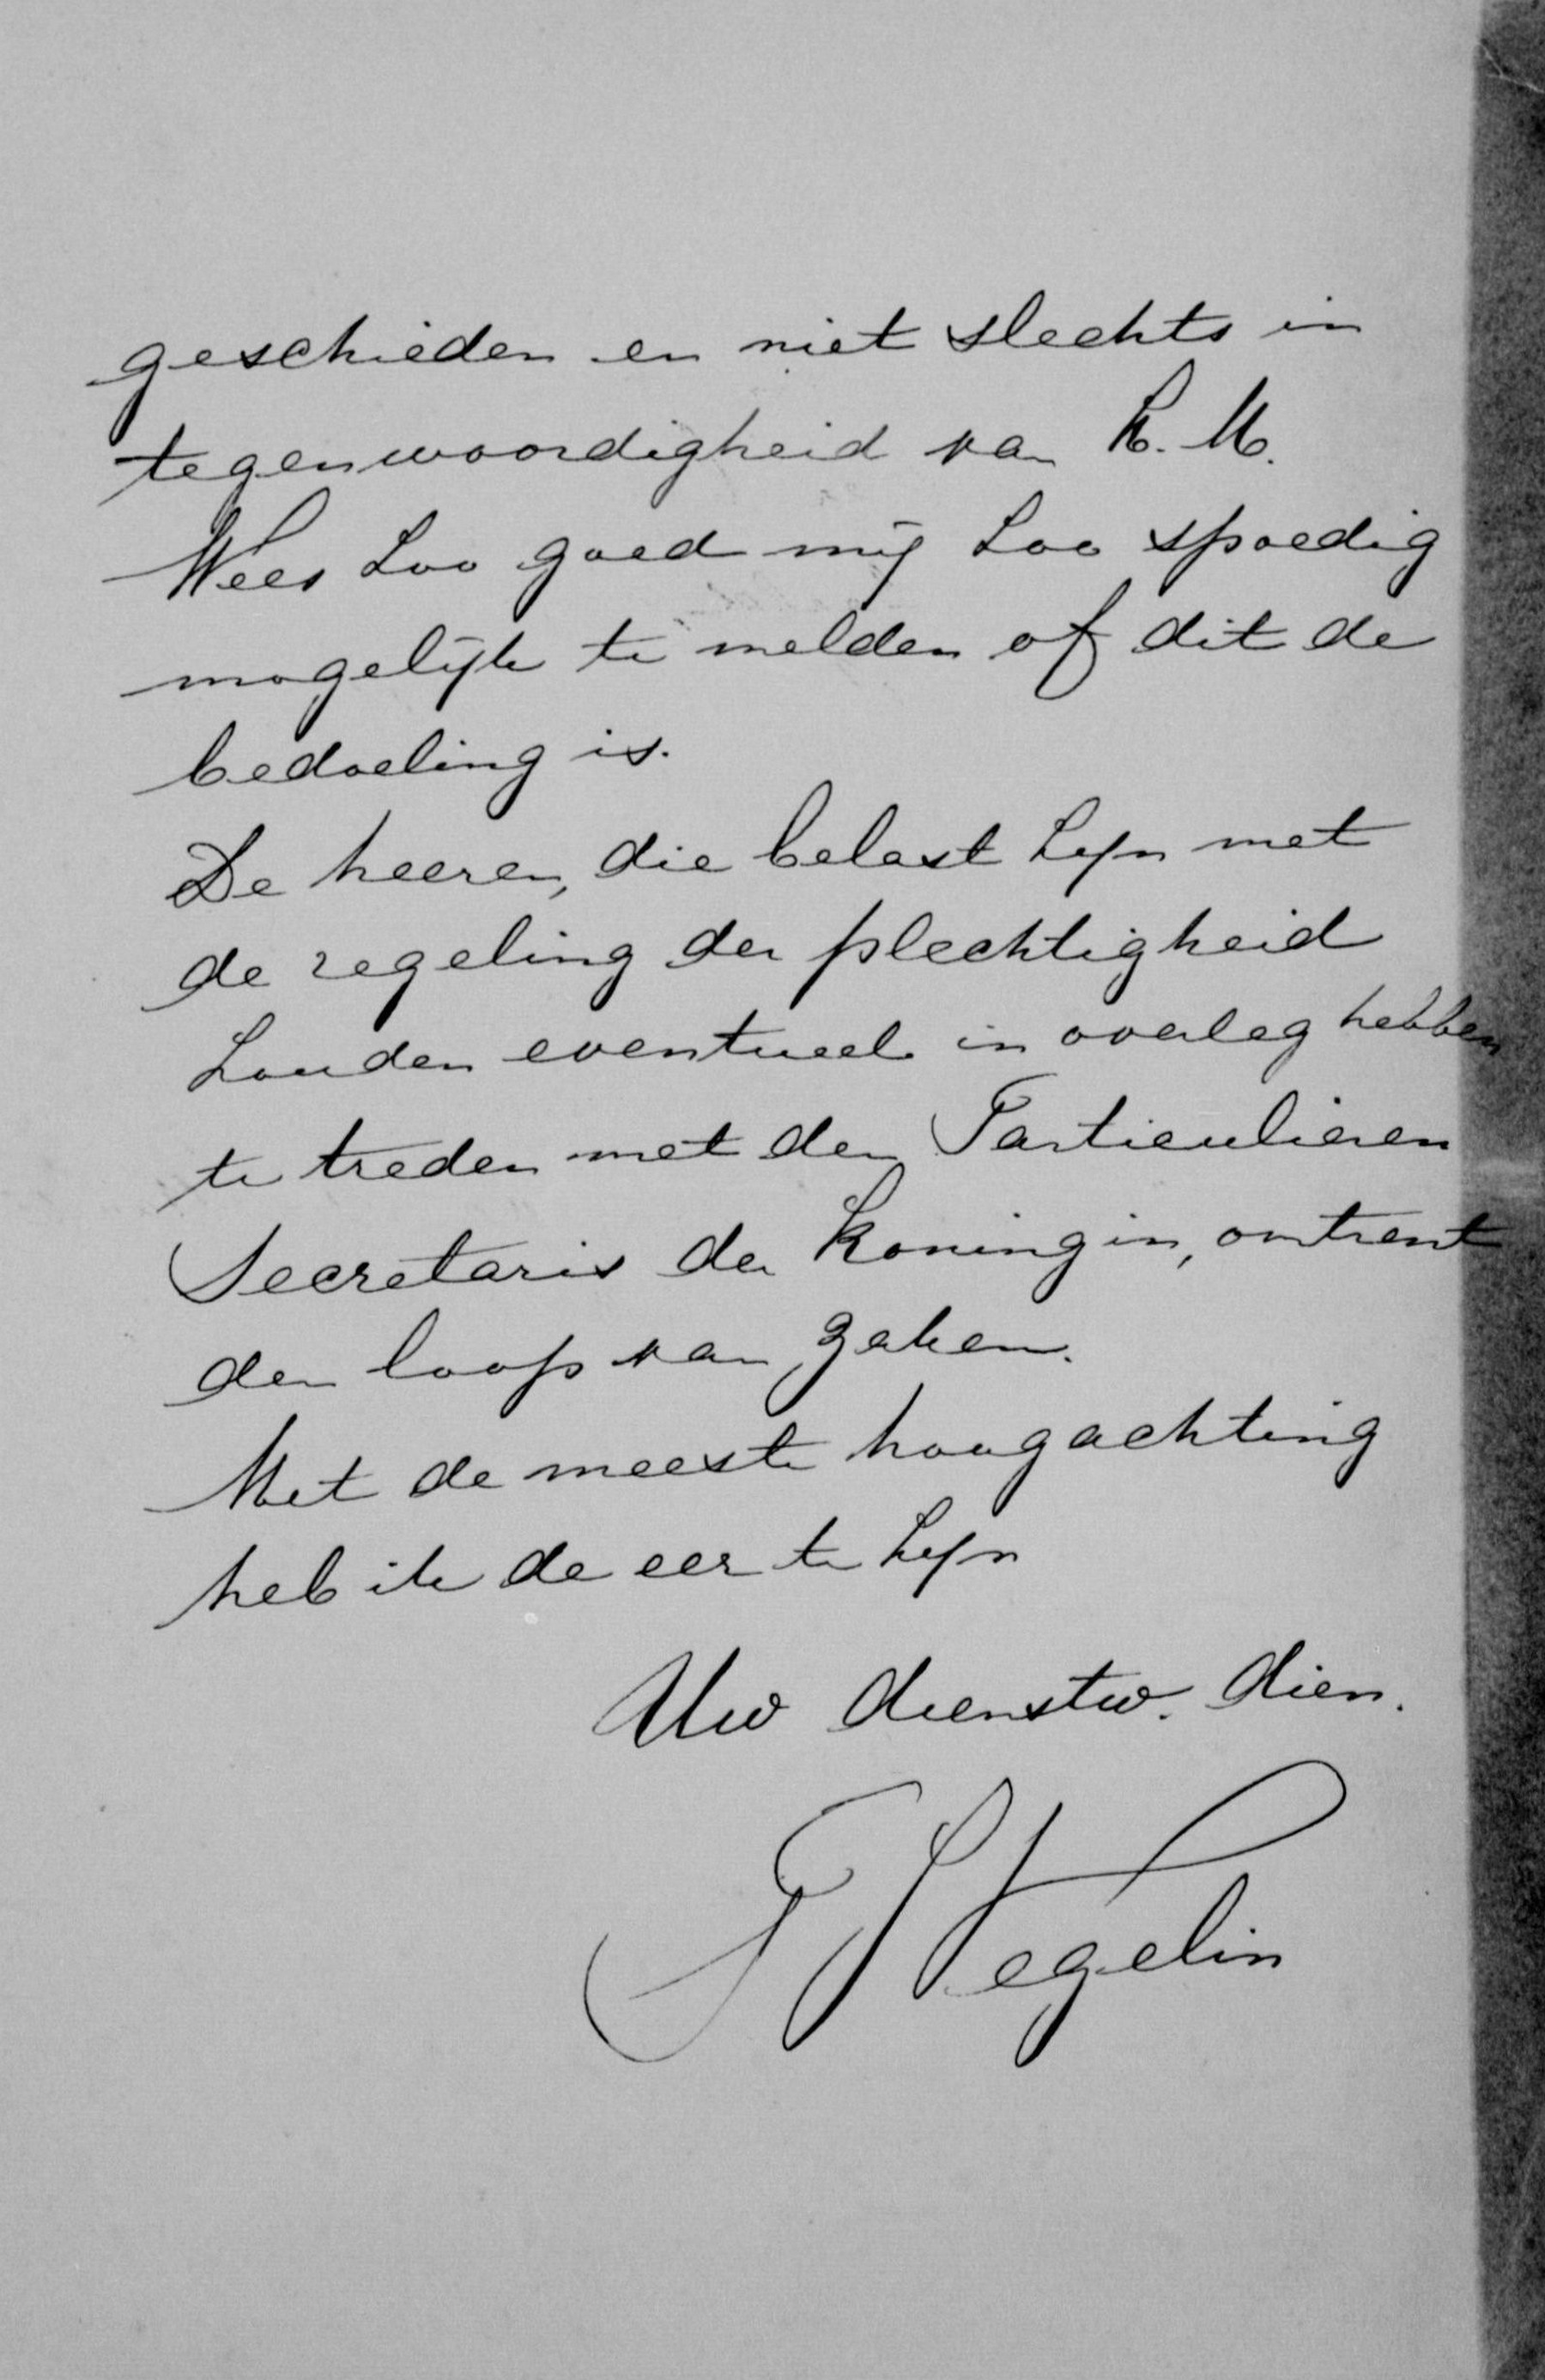 geschieden en niet slechts in
tegenwoordigheid van H. M.
Wees zoo goed mij zoo spoedig
mogelijk te melden of dit de
bedoeling is.
De heeren, die belast zijn met
de regeling der plechtigheid
zouden eventueel in overleg hebben
te treden met den Particulieren
Secretaris der Koningin, omtrent
den loop van zaken.
Met de meeste hoogachting
heb ik de eer te zijn
Uw dienstw. dien.
Vegelin